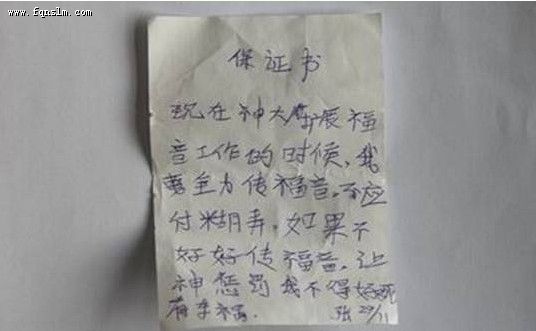 www.fqnslm.com
保证书
现在神大扩展福
音工作的时候,我
要全力传福音。不应
付糊弄,如果不
好好传福音,让
神惩罚我不得好死
张 27/11